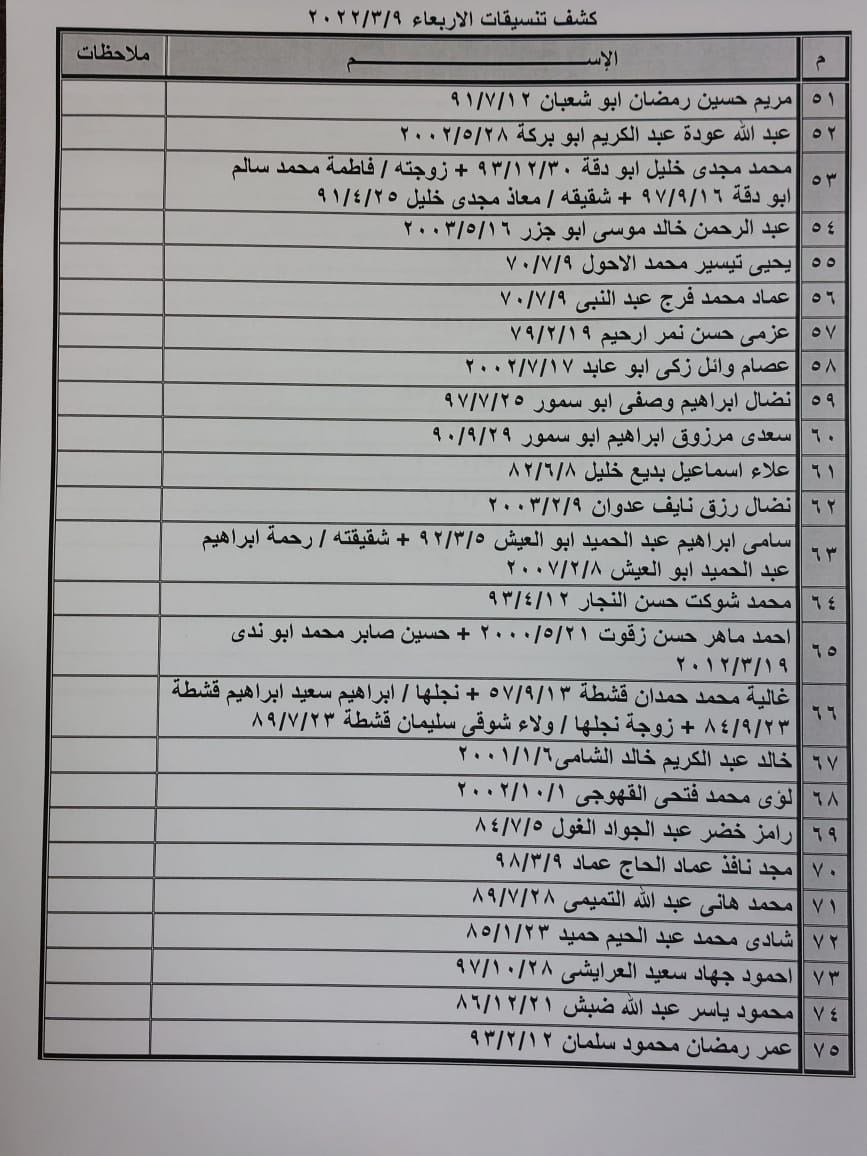 كشف تنسيقات الاربعاء ٢٠٢٢/٣/٩
م الإســـــــــم ملاحظات
٥١ مريم حسين رمضان ابو شعبان ٩١/٧/١٢
٥٢ عبد الله عودة عبد الكريم ابو بركة ٢٠٠٢/٥/٢٨
٥٣ محمد مجدى خليل ابو دقة ٩٣/١٢/٣٠ + زوجته / فاطمة محمد سالم
ابو دقة ٩٧/٩/١٦ + شقيقه / معاذ مجدى خليل ٩١/٤/٢٥
٥٤ عبد الرحمن خالد موسى ابو جزر ٢٠٠٣/٥/١٦
٥٥ يحيى تيسير محمد الاحول ٧٠/٧/٩
٥٦ عماد محمد فرج عبد النبى ٧٠/٧/٩
٥٧ عزمى حسن نمر ارحيم ٧٩/٢/١٩
٥٨ عصام وائل زكى ابو عابد ٢٠٠٢/٧/١٧
٥٩ نضال ابراهيم وصفى ابو سمور ٩٧/٧/٢٥
٦٠ سعدى مرزوق ابراهيم ابو سمور ٩٠/٩/٢٩
٦١ علاء اسماعيل بديع خليل ٨٢/٦/٨
٦٢ نضال رزق نايف عدوان ٢٠٠٣/٢/٩
٦٣ سامى ابراهيم عبد الحميد ابو العيش ٩٢/٣/٥ + شقيقته / رحمة ابراهيم
عبد الحميد ابو العيش ٢٠٠٧/٢/٨
٦٤ محمد شوكت حسن النجار ٩٣/٤/١٢
٦٥ احمد ماهر حسن زقوت ٢٠٠٠/٥/٢١ + حسين صابر محمد ابو ندى
٢٠١٢/٣/١٩
٦٦ غالية محمد حمدان قشطة ٥٧/٩/١٣ + نجلها / ابراهيم سعيد ابراهيم قشطة
٨٤/٩/٢٣ + زوجة نجلها / ولاء شوقى سليمان قشطة ٨٩/٧/٢٣
٦٧ خالد عبد الكريم خالد الشامى٢٠٠١/١/٦
٦٨ لؤى محمد فتحى القهوجى ٢٠٠٢/١٠/١
٦٩ رامز خضر عبد الجواد الغول ٨٤/٧/٥
٧٠ مجد نافذ عماد الحاج عماد ٩٨/٣/٩
٧١ محمد هانى عبد الله التميمى ٨٩/٧/٢٨
٧٢ شادى محمد عبد الحيم حميد ٨٥/١/٢٣
٧٣ احمود جهاد سعيد العرايشى ٩٧/١٠/٢٨
٧٤ محمود ياسر عبد الله ضبش ٨٦/١٢/٢١
٧٥ عمر رمضان محمود سلمان ٩٣/٢/١٢